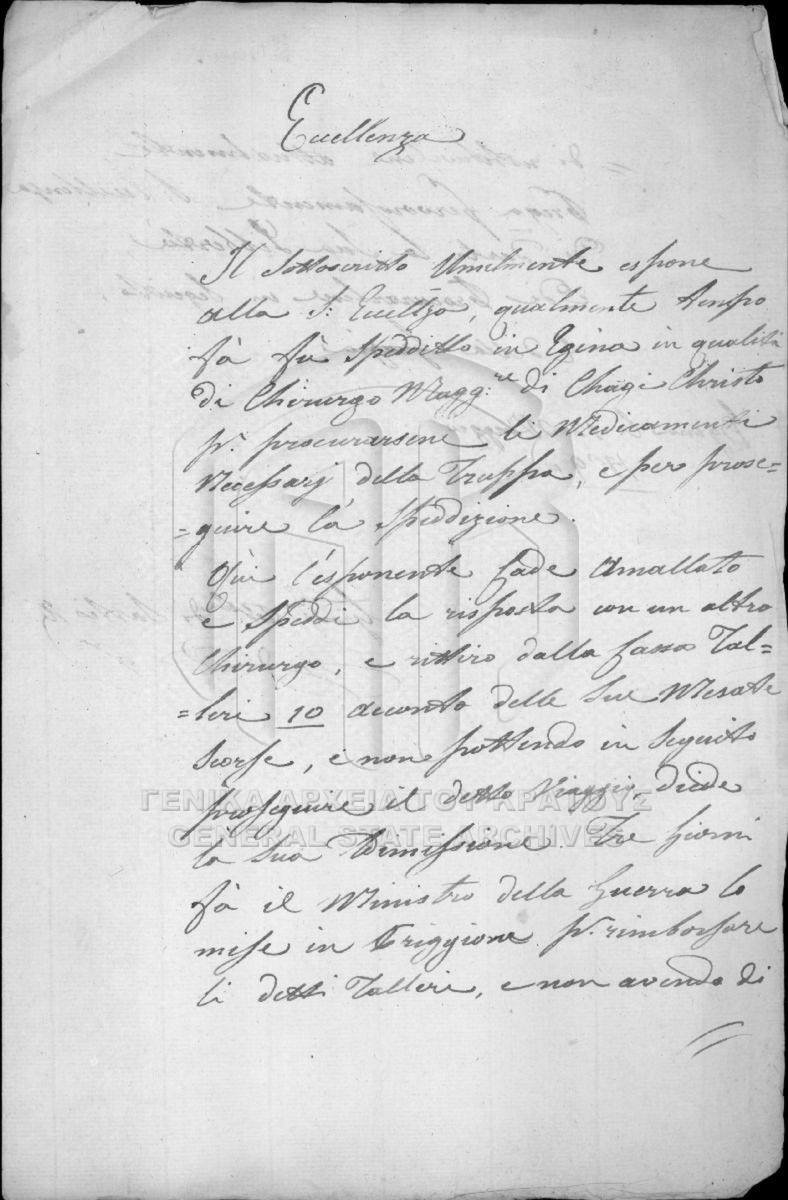 Eccellenza
Il Sottoscritto Umilmente espone
alla S: Ecellza, qualmente tempo
fà fù Speditto in Egina in qualità
di Chirurgo Magg:re di Chagi Christo
pr. procurarsene li Medicamenti
Necessarj della Truppa, e per prose=
=guire la Speddizione.
Qùi l'esponente Cade Amallato
e Speddi la risposta con un altro
Chirurgo, e rittiro dalla Cassa Tal=
=leri 10 acconto delle Sue Mesate
Scorse, e non pottendo in Seguito
proseguire il detto Viaggio, diede
la Sua Dimissione Tre Giorni
fà il Ministro della Guerra lo
mise in Priggione pr. rimborsare
li detti Talleri, e non avendo di
ΓΕΝΙΚΑ ΑΡΧΕΙΑ ΤΟΥ ΚΡΑΤΟΥΣ
GENERAL STATE ARCHIVES